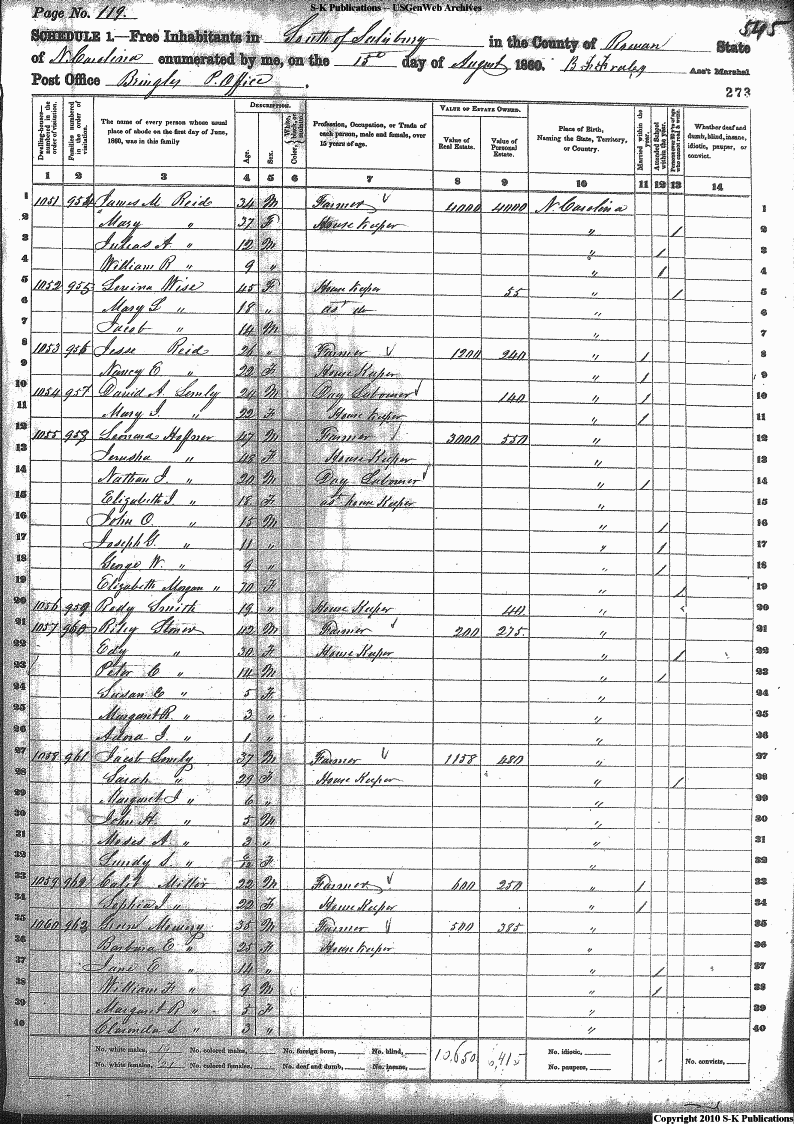 S-K Publications – USGenWeb Archives
Page No. 119.
545
SCHEDULE 1.—Free Inhabitants in South of Salisbury in the County of Rowan State
of N. Carolina enumerated by me, on the 15th day of August 1860. Ass't Marshal
Post Office Bringles P. Office.
273
Dwelling-houses—numbered in the order of visitation.
Families numbered in the order of visitation.
The name of every person whose usual place of abode on the first day of June, 1860, was in this family
DESCRIPTION.
Age.
Sex.
Profession, Occupation, or Trade of each person, male and female, over 15 years of age.
VALUE OF ESTATE OWNED.
Value of Real Estate.
Value of Personal Estate.
Place of Birth, Naming the State, Territory, or Country.
Married within the year.
Attended School within the year.
Whether deaf and dumb, blind, insane, idiotic, pauper, or convict.
1 2 3 4 5 6 7 8 9 10 11 12 13 14
1 1051 954 James M. Reid 34 M Farmer 4000 4000 N. Carolina 1
2 Mary " 37 F House Keeper " / 2
3 A. " 12 M " / 3
4 William R. " 9 " " / 4
5 1052 955 Wise 45 F House Keeper 55 " / 5
6 Mary L. " 18 " " 6
7 Jacob " 14 M " 7
8 1053 956 Jesse Reid 26 " Farmer 1200 240 " / 8
9 Nancy C. " 22 F House Keeper " / 9
10 1054 957 David A. Lemly 24 M Day Laborer 140 " / 10
11 Mary J. " 22 F House Keeper " / 11
12 1055 958 Leonard Hoffner 47 M Farmer 3000 550 " 12
13 Jerusha " 48 F House Keeper " 13
14 Nathan J. " 20 M Day Laborer " / 14
15 Elizabeth J. " 18 F as house Keeper " 15
16 John O. " 15 M " / 16
17 Joseph G. " 11 " " / 17
18 George W. " 9 " " / 18
19 Elizabeth Morgan " 70 F " / 19
20 1056 959 Smith 19 " House Keeper 40 " 20
21 1057 960 Riley Stoner 42 M Farmer 200 275 " 21
22 Edy " 30 F House Keeper " / 22
23 Peter C. " 14 M " / 23
24 Susan C. " 5 F " 24
25 Margaret R. " 3 " " 25
26 Adora J. " 1 " " 26
27 1058 961 Jacob Lemly 37 M Farmer 1158 480 " 27
28 Sarah " 29 F House Keeper " / 28
29 Margaret J. " 6 " " 29
30 John H. " 5 M " 30
31 Moses A. " 3 " " 31
32 Lundy S. " F " 32
33 1059 962 Miller 22 M Farmer 600 250 " / 33
34 Sophia J. " 22 F House Keeper " / 34
35 1060 963 Mowery 35 M Farmer 500 385 " 35
36 Barbara E. " 25 F House Keeper " 36
37 Jane E. " 14 " " / 37
38 William F. " 9 M " / 38
39 Margaret R. " 5 F " 39
40 S. " 3 " " 40
No. white males, No. colored males, No. foreign born, No. blind, 10,650 No. idiotic,
No. white females, 21 No. colored females, No. deaf and dumb, No. insane, No. paupers, No. convicts,
Copyright 2010 S-K Publications